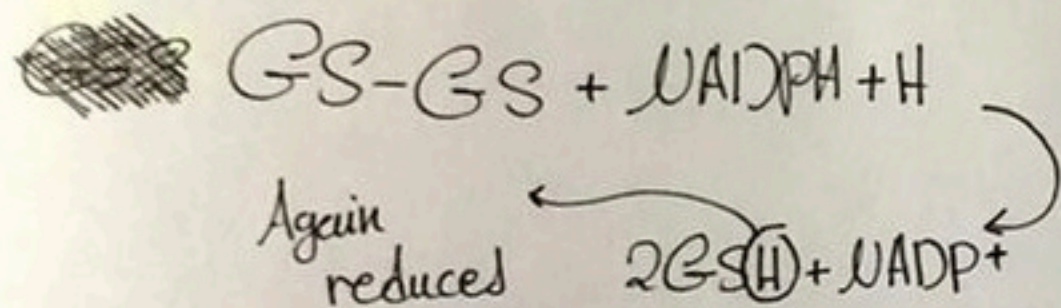 GS-GS + NADPH + H
Again
reduced
2GSH + NADP+